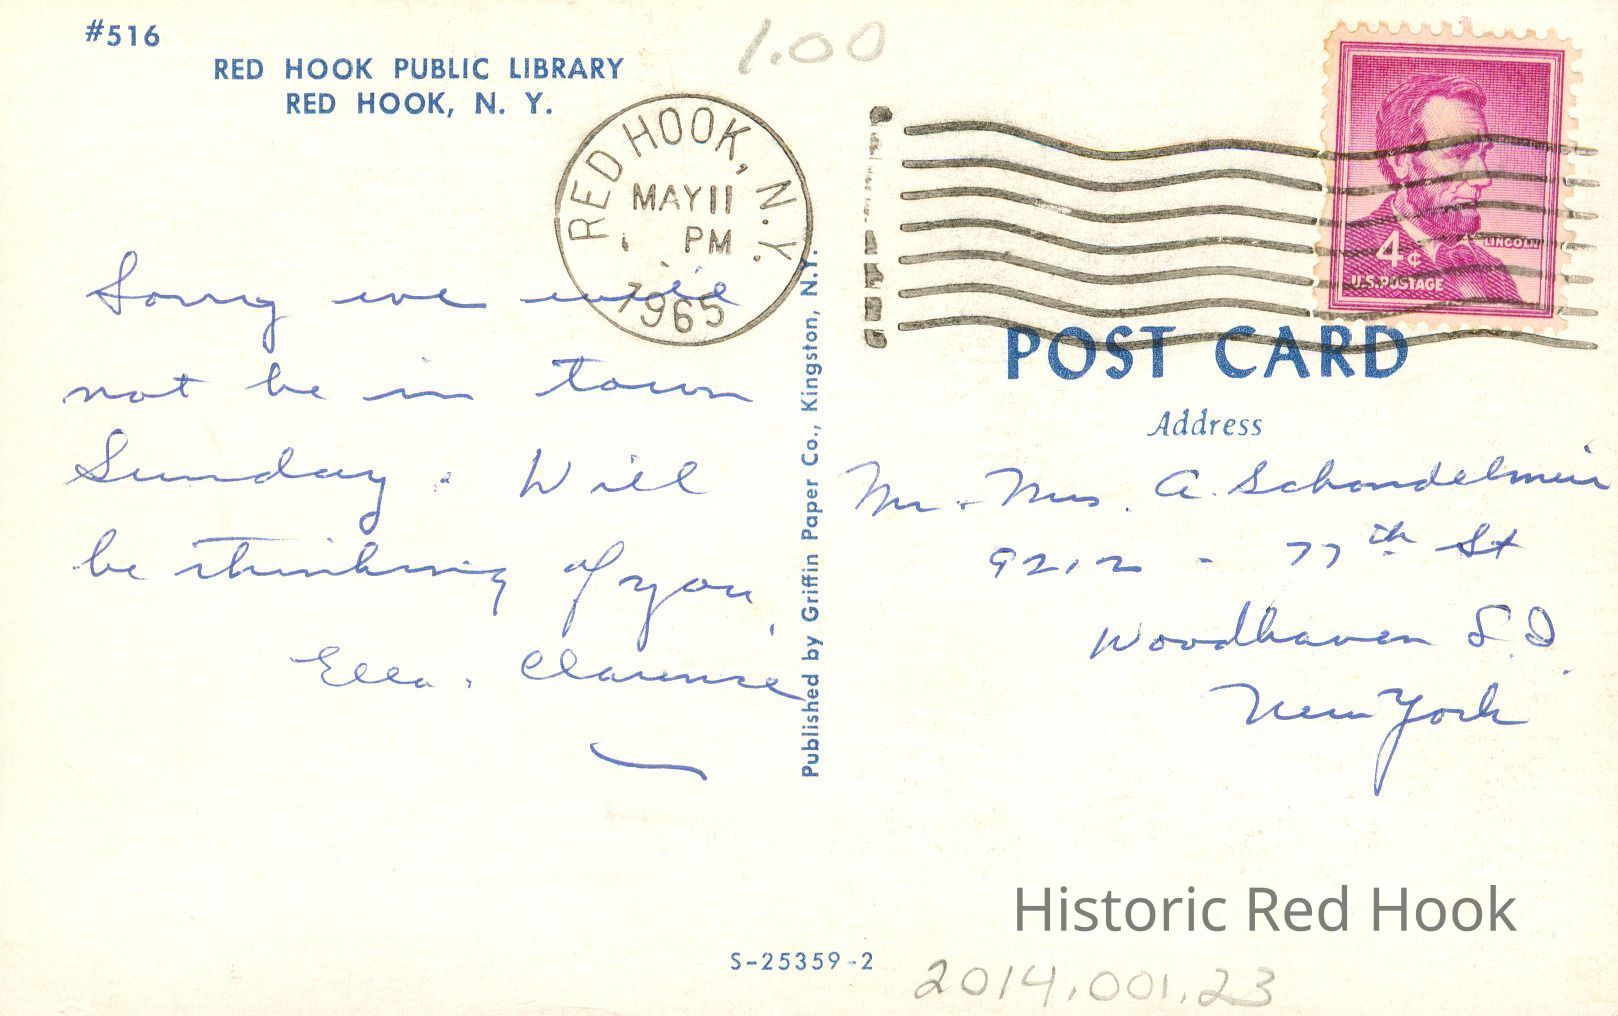 #516
RED HOOK PUBLIC LIBRARY
RED HOOK, N. Y.
1.00
RED HOOK, N.Y.
MAY 11
PM
1965
4¢
LINCOLN
U.S. POSTAGE
Sorry we will
not be in town
Sunday. Will
be thinking of you,
Ella. Clarence
Published by Griffin Paper Co., Kingston, N.Y.
POST CARD
Address
Mr. Mrs. A. Schondelmeir
9212 - 77th St
Woodhaven L.I.
New York
Historic Red Hook
S-25359-2
2014.001.23